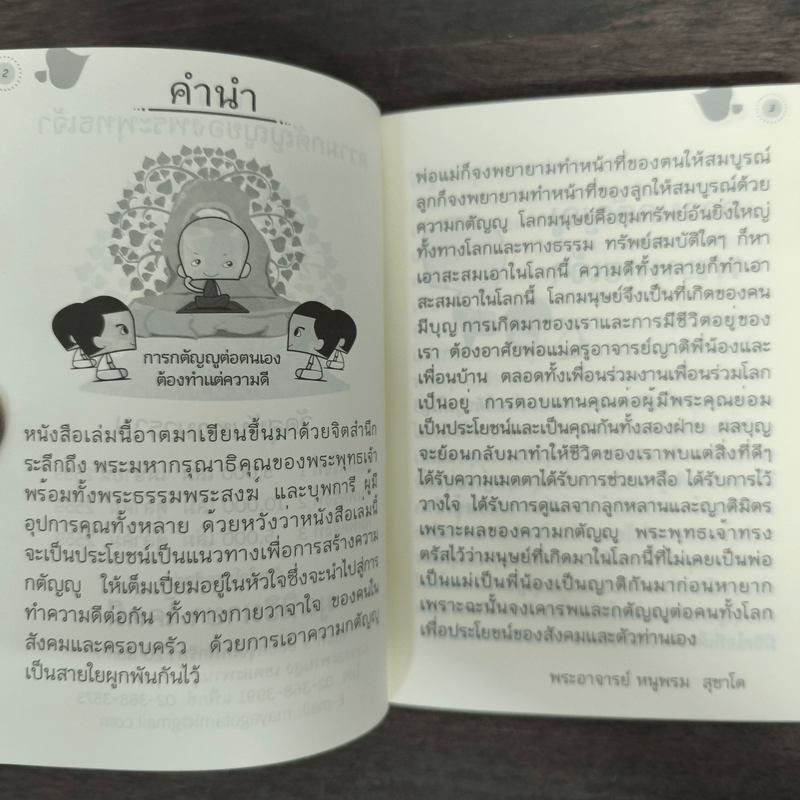 2
คำนำ
การกตัญญูต่อตนเอง
ต้องทำแต่ความดี
หนังสือเล่มนี้อาตมาเขียนขึ้นมาด้วยจิตสำนึก
ระลึกถึง พระมหากรุณาธิคุณของพระพุทธเจ้า
พร้อมทั้งพระธรรมพระสงฆ์ และบุพการี ผู้มี
อุปการคุณทั้งหลาย ด้วยหวังว่าหนังสือเล่มนี้
จะเป็นประโยชน์เป็นแนวทางเพื่อการสร้างความ
กตัญญู ให้เต็มเปี่ยมอยู่ในหัวใจซึ่งจะนำไปสู่การ
ทำความดีต่อกัน ทั้งทางกายวาจาใจ ของคนใน
สังคมและครอบครัว ด้วยการเอาความกตัญญู
เป็นสายใยผูกพันกันไว้
3
พ่อแม่ก็จงพยายามทำหน้าที่ของตนให้สมบูรณ์
ลูกก็จงพยายามทำหน้าที่ของลูกให้สมบูรณ์ด้วย
ความกตัญญู โลกมนุษย์คือขุมทรัพย์อันยิ่งใหญ่
ทั้งทางโลกและทางธรรม ทรัพย์สมบัติใดๆ ก็หา
เอาสะสมเอาในโลกนี้ ความดีทั้งหลายก็ทำเอา
สะสมเอาในโลกนี้ โลกมนุษย์จึงเป็นที่เกิดของคน
มีบุญ การเกิดมาของเราและการมีชีวิตอยู่ของ
เรา ต้องอาศัยพ่อแม่ครูอาจารย์ญาติพี่น้องและ
เพื่อนบ้าน ตลอดทั้งเพื่อนร่วมงานเพื่อนร่วมโลก
เป็นอยู่ การตอบแทนคุณต่อผู้มีพระคุณย่อม
เป็นประโยชน์และเป็นคุณกันทั้งสองฝ่าย ผลบุญ
จะย้อนกลับมาทำให้ชีวิตของเราพบแต่สิ่งที่ดีๆ
ได้รับความเมตตาได้รับการช่วยเหลือ ได้รับการไว้
วางใจ ได้รับการดูแลจากลูกหลานและญาติมิตร
เพราะผลของความกตัญญู พระพุทธเจ้าทรง
ตรัสไว้ว่ามนุษย์ที่เกิดมาในโลกนี้ที่ไม่เคยเป็นพ่อ
เป็นแม่เป็นพี่น้องเป็นญาติกันมาก่อนหายาก
เพราะฉะนั้นจงเคารพและกตัญญูต่อคนทั้งโลก
เพื่อประโยชน์ของสังคมและตัวท่านเอง
พระอาจารย์ หนูพรม สุชาโต